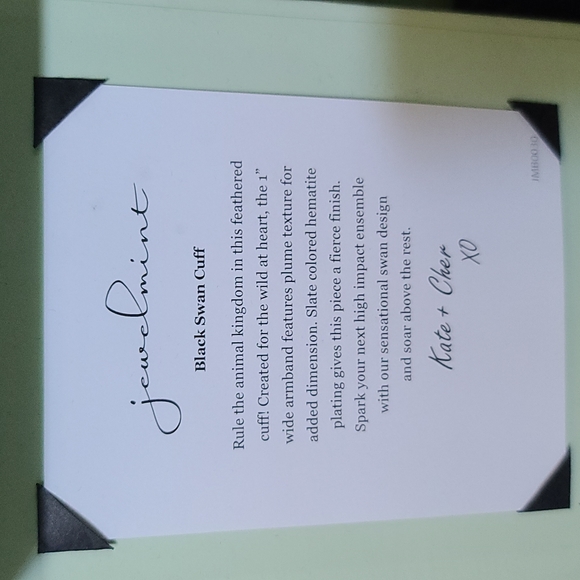 jewelmint
Black Swan Cuff
Rule the animal kingdom in this feathered
cuff! Created for the wild at heart, the 1”
wide armband features plume texture for
added dimension. Slate colored hematite
plating gives this piece a fierce finish.
Spark your next high impact ensemble
with our sensational swan design
and soar above the rest.
Kate + Cher
XO